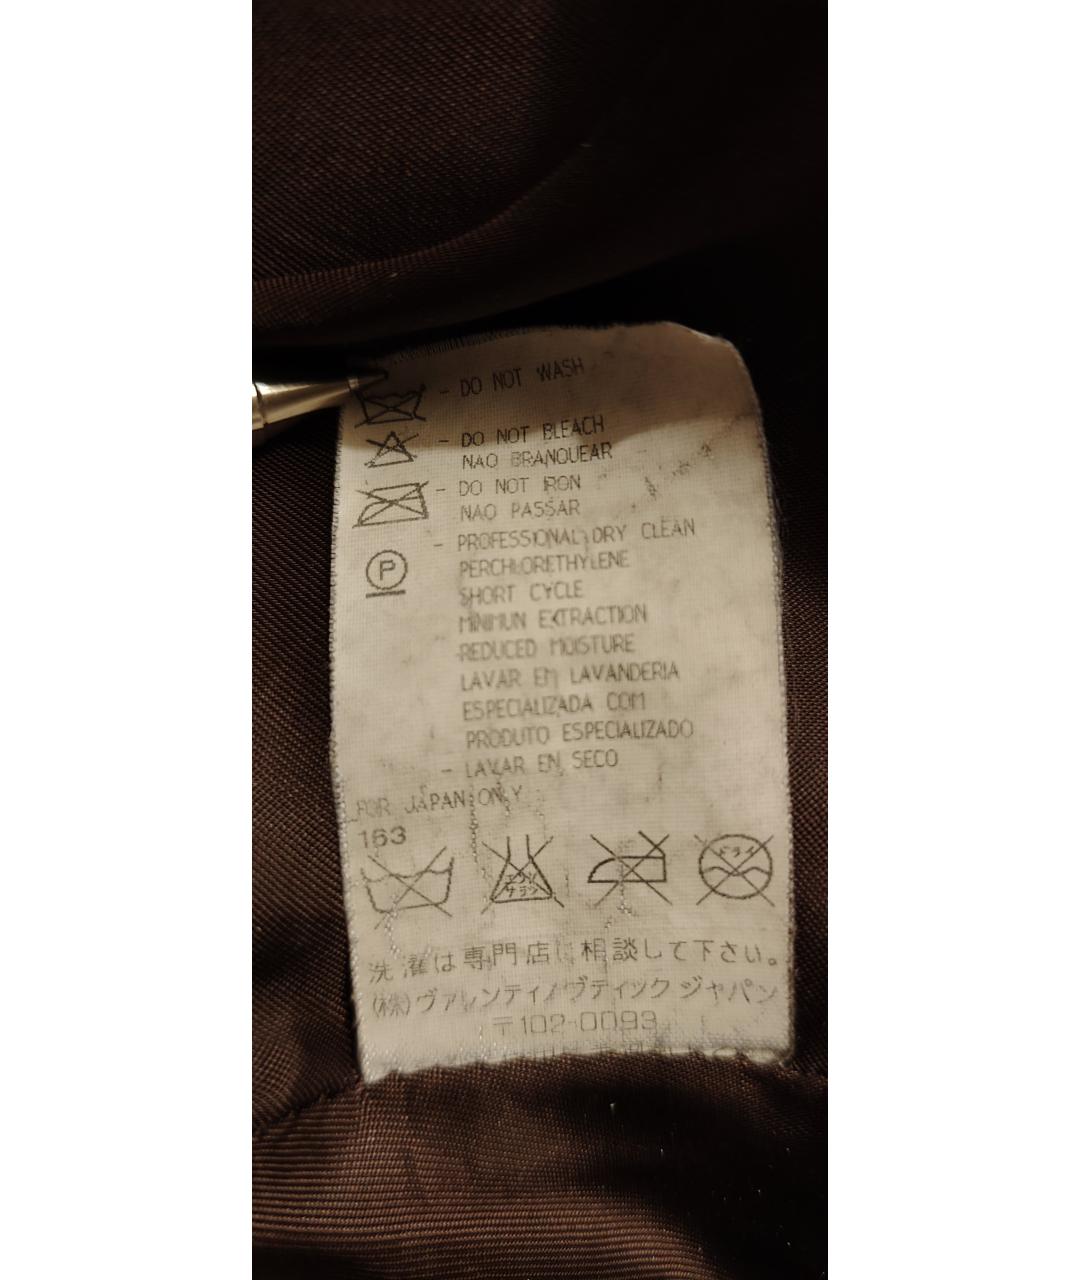 - DO NOT WASH
- DO NOT BLEACH
NAO BRANQUEAR
- DO NOT IRON
NAO PASSAR
- PROFESSIONAL DRY CLEAN
P
PERCHLORETHYLENE
SHORT CYCLE
MINIMUN EXTRACTION
REDUCED MOISTURE
LAVAR EM LAVANDERIA
ESPECIALIZADA COM
PRODUTO ESPECIALIZADO
- LAVAR EN SECO
FOR JAPAN ONLY
163
エンソ サラシ ドライ
洗濯は専門店に相談して下さい。
(株)ヴァレンティノブティック ジャパン
〒102-0093